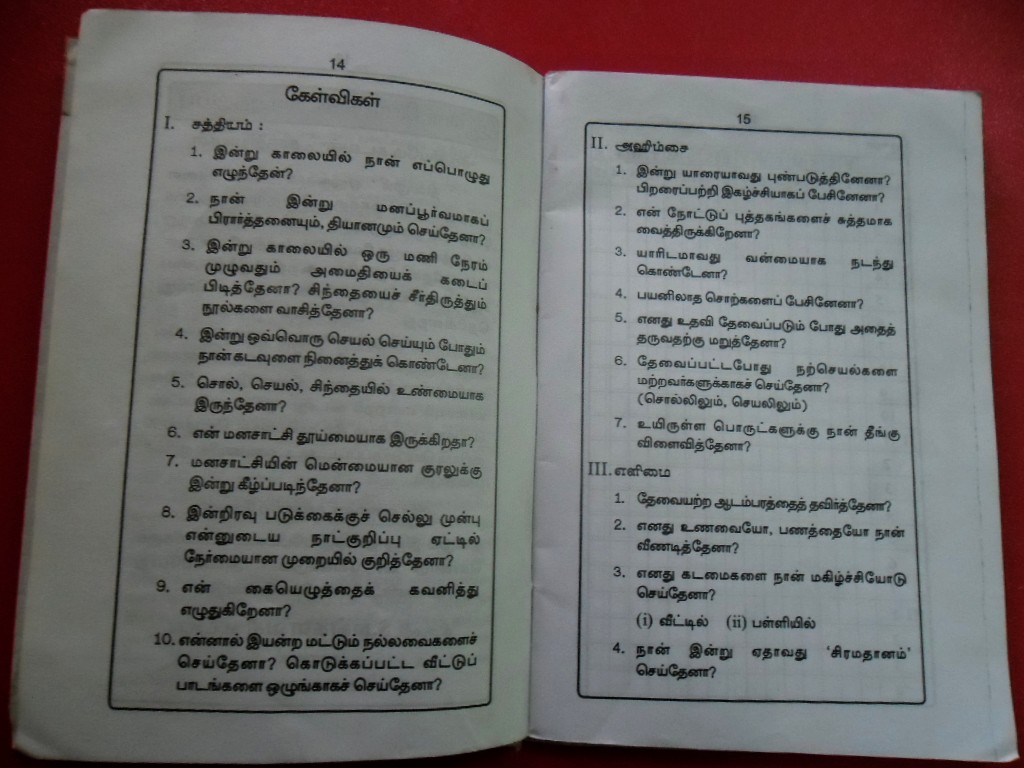 14
கேள்விகள்
I. சத்தியம் :
1. இன்று காலையில் நான் எப்பொழுது
எழுந்தேன்?
2. நான் இன்று மனப்பூர்வமாகப்
பிரார்த்தனையும், தியானமும் செய்தேனா?
3. இன்று காலையில் ஒரு மணி நேரம்
முழுவதும் அமைதியைக் கடைப்
பிடித்தேனா? சிந்தையைச் சீர்திருத்தும்
நூல்களை வாசித்தேனா?
4. இன்று ஒவ்வொரு செயல் செய்யும் போதும்
நான் கடவுளை நினைத்துக் கொண்டேனா?
5. சொல், செயல், சிந்தையில் உண்மையாக
இருந்தேனா?
6. என் மனசாட்சி தூய்மையாக இருக்கிறதா?
7. மனசாட்சியின் மென்மையான குரலுக்கு
இன்று கீழ்ப்படிந்தேனா?
8. இன்றிரவு படுக்கைக்குச் செல்லு முன்பு
என்னுடைய நாட்குறிப்பு ஏட்டில்
நேர்மையான முறையில் குறித்தேனா?
9. என் கையெழுத்தைக் கவனித்து
எழுதுகிறேனா?
10. என்னால் இயன்ற மட்டும் நல்லவைகளைச்
செய்தேனா? கொடுக்கப்பட்ட வீட்டுப்
பாடங்களை ஒழுங்காகச் செய்தேனா?
15
II. அஹிம்சை
1. இன்று யாரையாவது புண்படுத்தினேனா?
பிறரைப்பற்றி இகழ்ச்சியாகப் பேசினேனா?
2. என் நோட்டுப் புத்தகங்களைச் சுத்தமாக
வைத்திருக்கிறேனா?
3. யாரிடமாவது வன்மையாக நடந்து
கொண்டேனா?
4. பயனிலாத சொற்களைப் பேசினேனா?
5. எனது உதவி தேவைப்படும் போது அதைத்
தருவதற்கு மறுத்தேனா?
6. தேவைப்பட்டபோது நற்செயல்களை
மற்றவர்களுக்காகச் செய்தேனா?
(சொல்லிலும், செயலிலும்)
7. உயிருள்ள பொருட்களுக்கு நான் தீங்கு
விளைவித்தேனா?
III. எளிமை
1. தேவையற்ற ஆடம்பரத்தைத் தவிர்த்தேனா?
2. எனது உணவையோ, பணத்தையோ நான்
வீணடித்தேனா?
3. எனது கடமைகளை நான் மகிழ்ச்சியோடு
செய்தேனா?
(i) வீட்டில் (ii) பள்ளியில்
4. நான் இன்று ஏதாவது 'சிரமதானம்'
செய்தேனா?